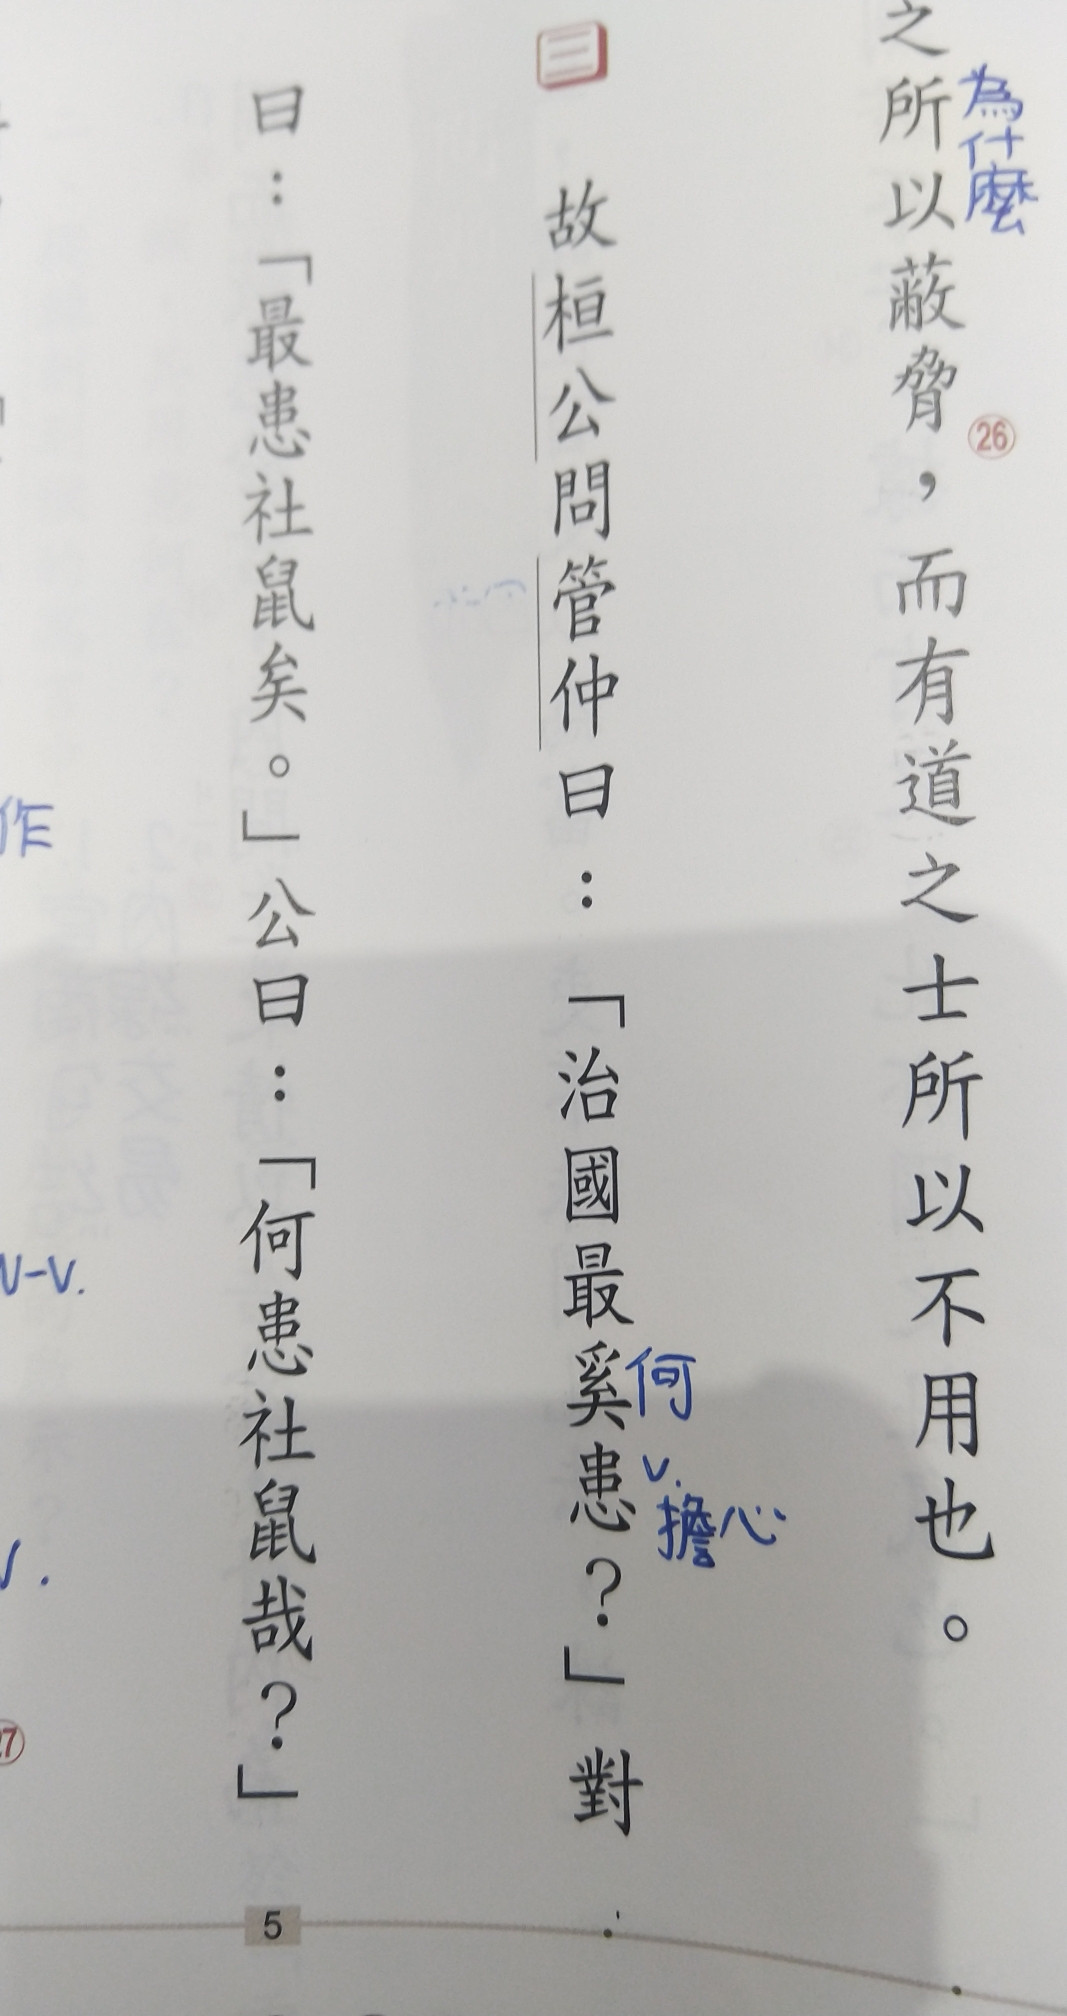 之所以蔽脅，而有道之士所以不用也。
為什麼
26
三
故桓公問管仲曰：「治國最奚患？」對
何
v.
擔心
曰：「最患社鼠矣。」公曰：「何患社鼠哉？」
作
N-V.
V.
27
5